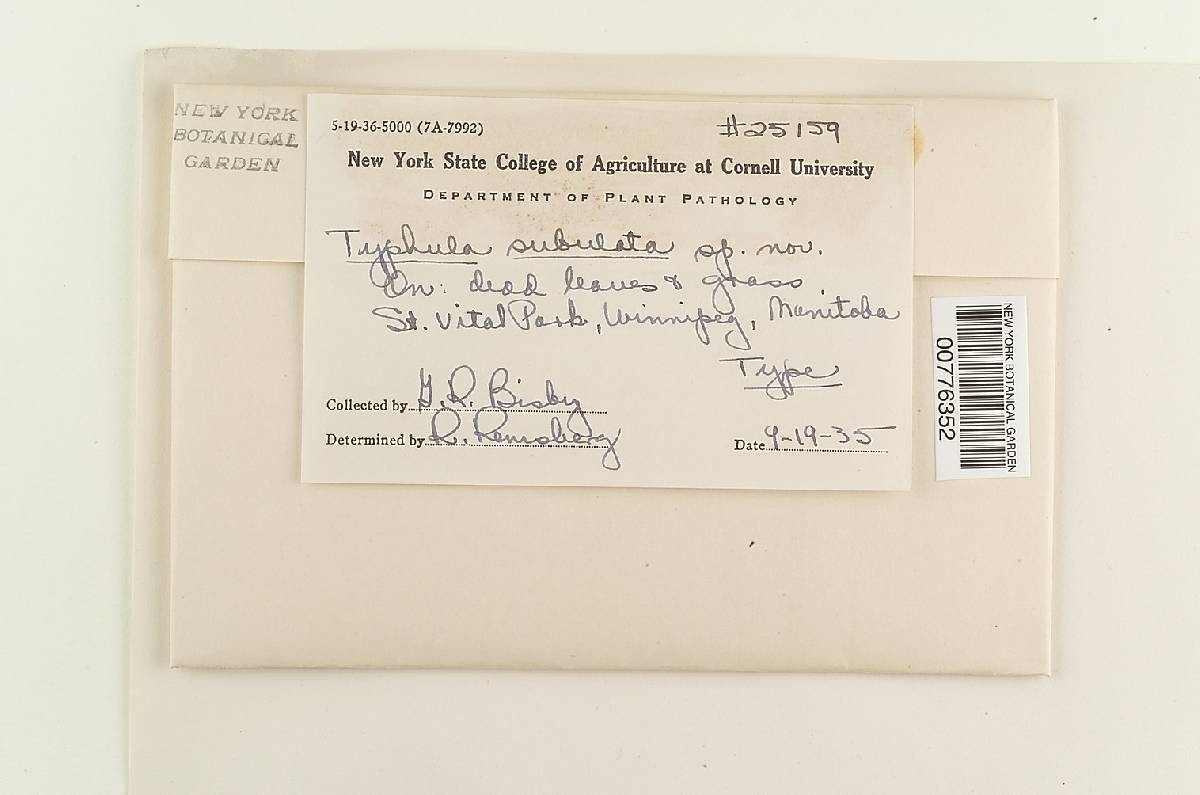 NEW YORK
BOTANICAL
GARDEN
5-19-36-5000 (7A-7992)
#25159
New York State College of Agriculture at Cornell University
DEPARTMENT OF PLANT PATHOLOGY
Typhula subulata sp. nov.
On: dead leaves & grass.
St. Vital Park, Winnipeg, Manitoba
Type
Collected by G. R. Bisby
Determined by R. Remsberg
Date 9-19-35
NEW YORK BOTANICAL GARDEN
00776352